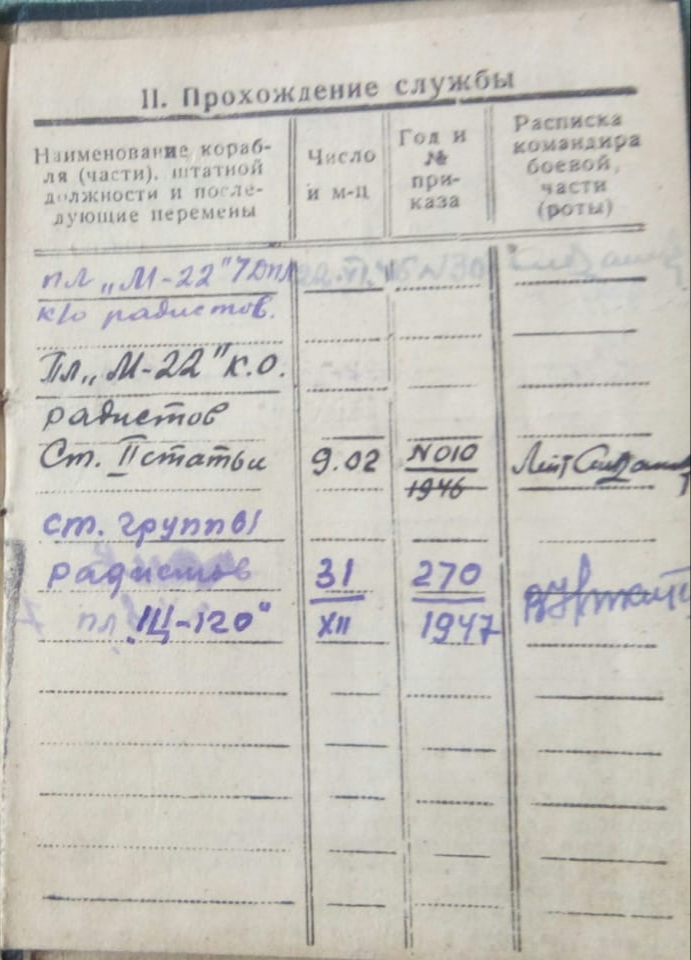 II. Прохождение службы
Наименование кораб-
ля (части), штатной
должности и после-
дующие перемены
Число
и м-ц
Год и
№
при-
каза
Расписка
командира
боевой
части
(роты)
пл „М-22" 7 Дпл
к/о радистов.
Пл „М-22" к.о.
радистов
Ст. II статьи 9.02 N 010
1946
Лейт
ст. группы
радистов 31 270
пл „Щ-120" XII 1947